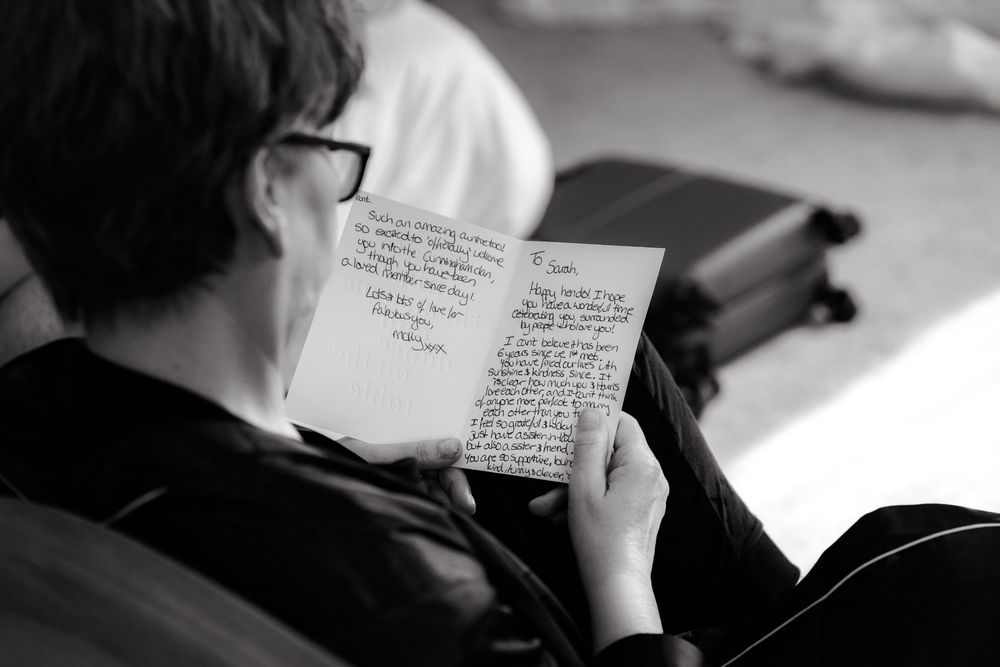 To Sarah,
Happy hendo! I hope
you have a wonderful time
celebrating you, surrounded
by people who love you!
I can't believe it has been
6 years since we 1st met.
You have filled our lives with
sunshine & kindness since. It
is clear how much you &
love each other, and I can't think
of anyone more perfect to marry
each other than you
I feel so grateful & lucky
just have a sister-in-
but also a sister & friend.
you are so supportive,
kind, funny & clever,
cont.
Such an amazing auntie too!
So excited to 'officially' welcome
you into the Cunningham clan,
though you have been
a loved member since day!
Lots & lots of love for
fabulous you,
Molly xxx